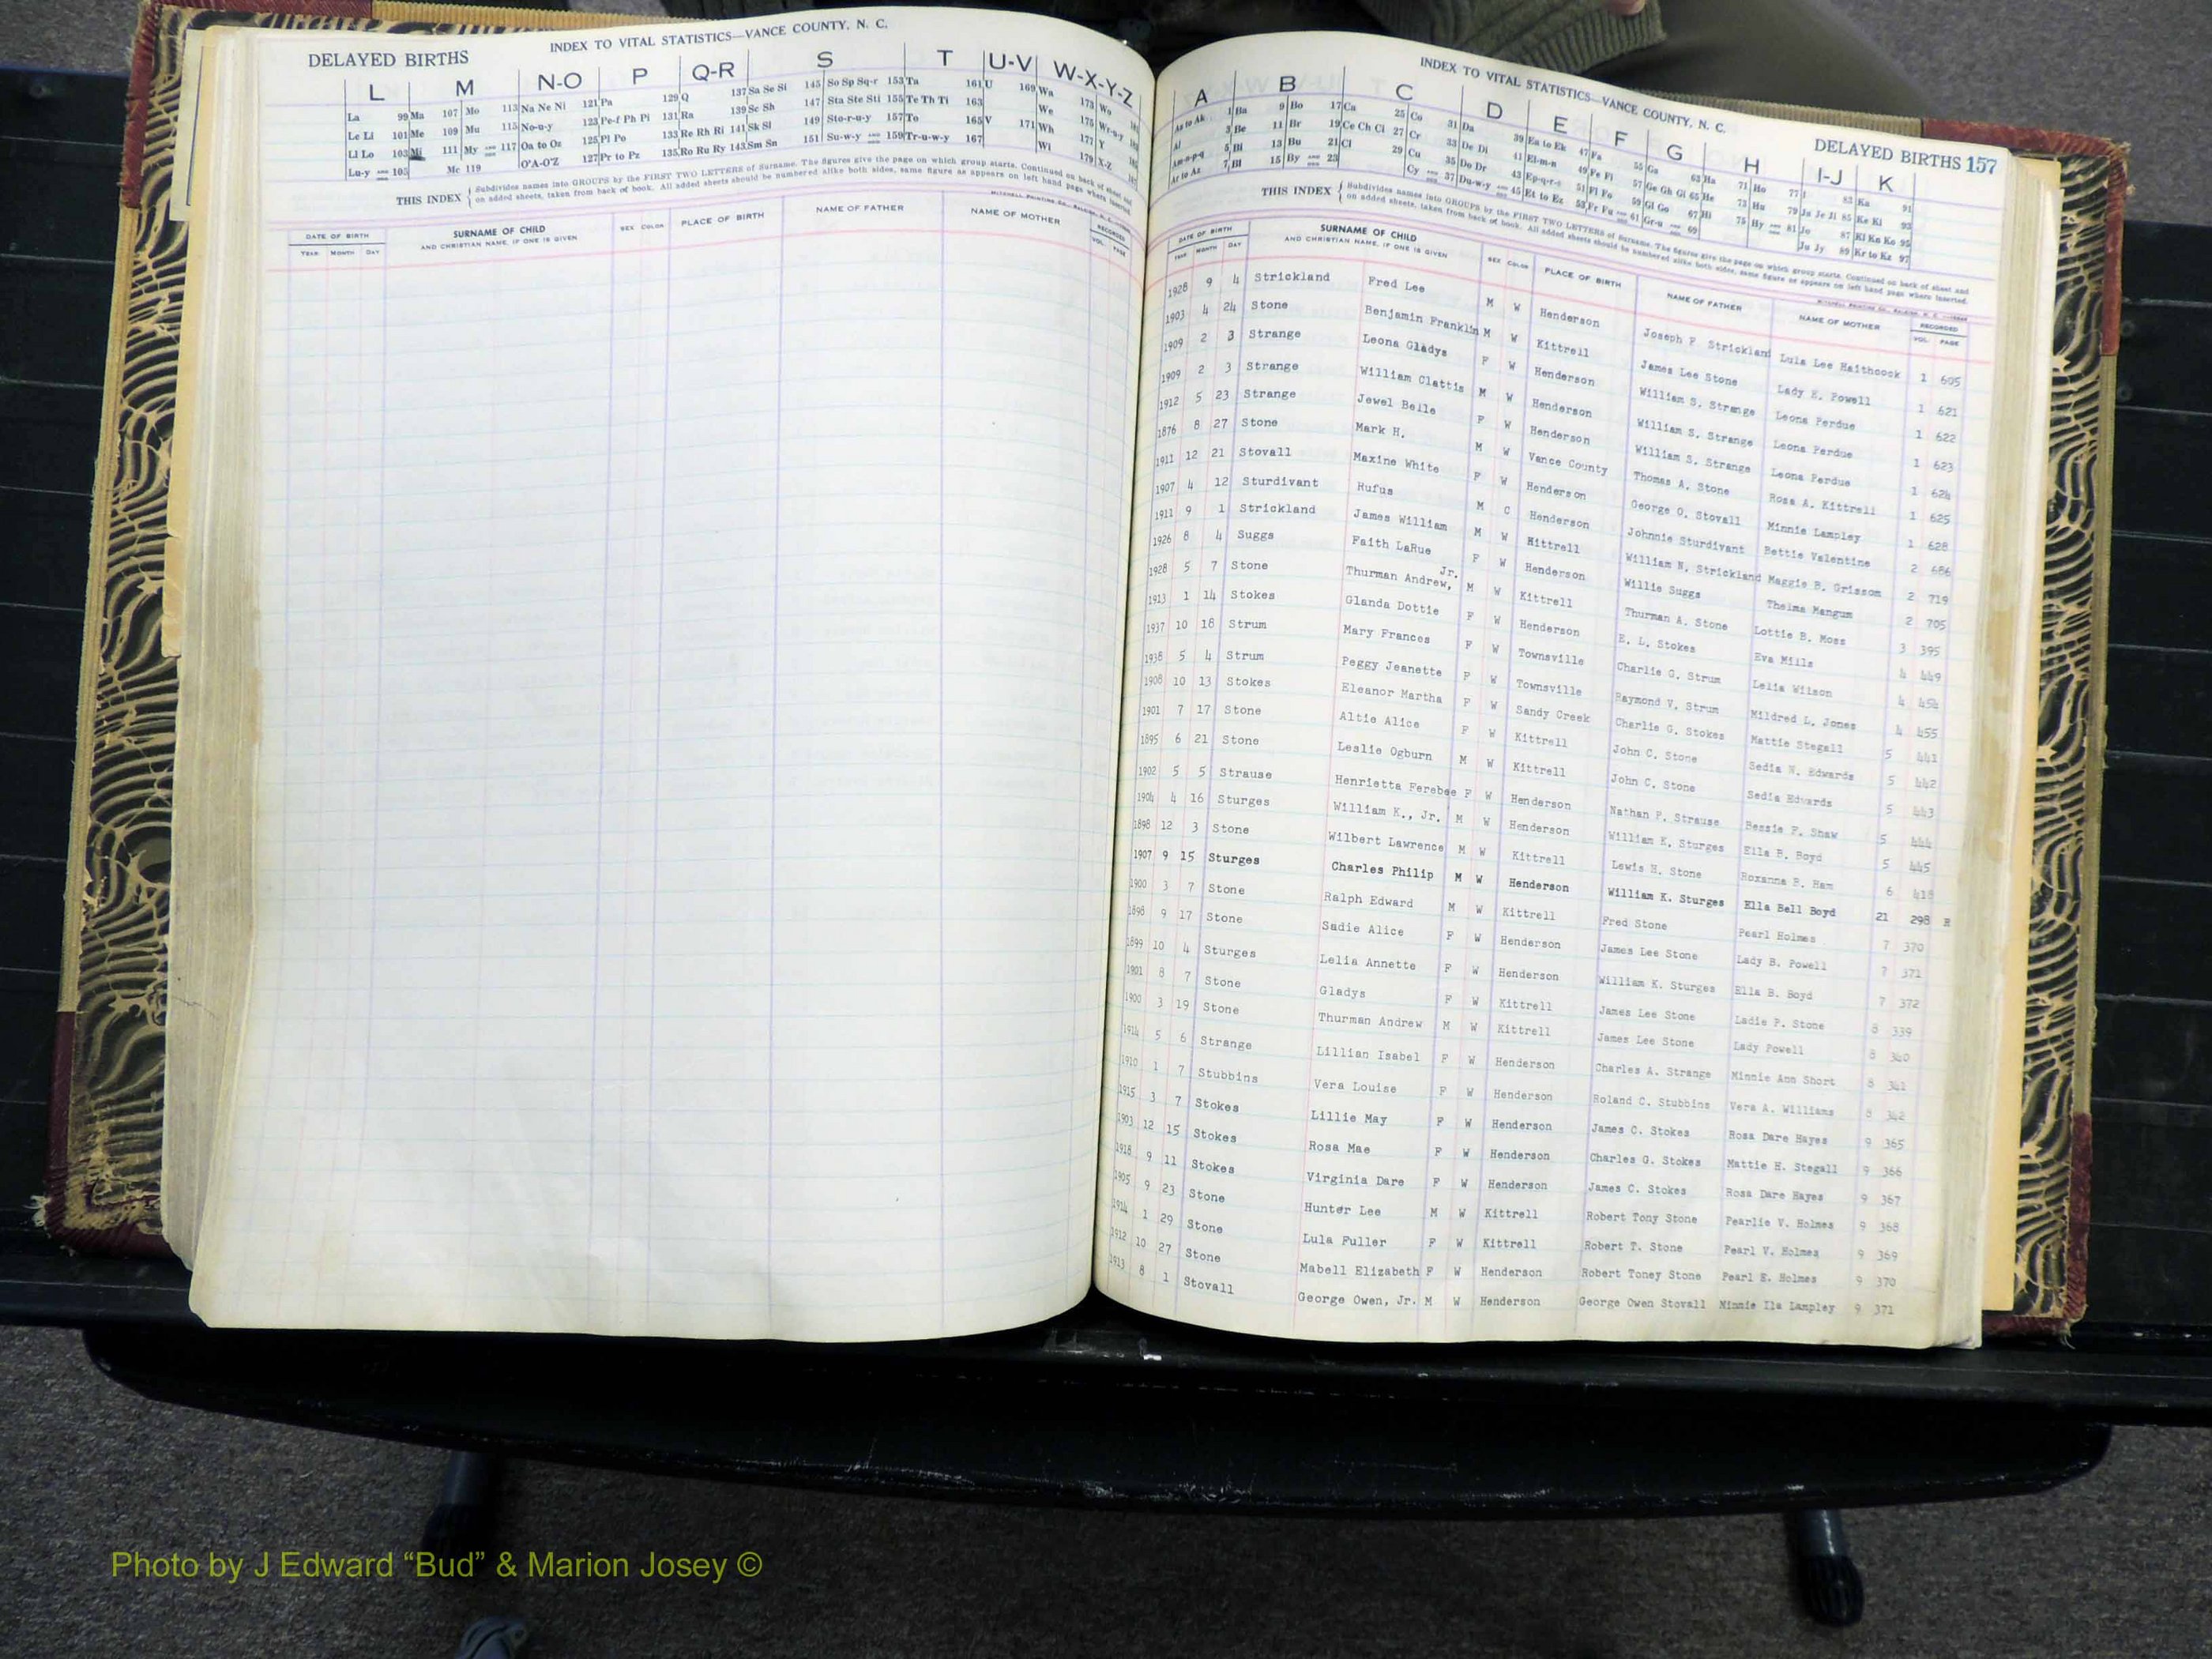 INDEX TO VITAL STATISTICS—VANCE COUNTY, N. C.
DELAYED BIRTHS
L M N-O P Q-R S T U-V W-X-Y-Z
La 99 Ma 107 Mo 113 Na Ne Ni 121 Pa 129 Q 137 Sa Se Si 145 So Sp Sq-r 153 Ta 161 U 169 Wa 173 Wo
Le Li 101 Me 109 Mu 115 No-u-y 123 Pe-f Ph Pi 131 Ra 139 Sc Sh 147 Sta Ste Sti 155 Te Th Ti 163 We 175 Wr-u-y
Ll Lo 103 Mi 111 My AND 117 Oa to Oz 125 Pl Po 133 Re Rh Ri 141 Sk Sl 149 Sto-r-u-y 157 To 165 V 171 Wh 177 Y
Lu-y AND 105 Mc 119 O'A-O'Z 127 Pr to Pz 135 Ro Ru Ry 143 Sm Sn 151 Su-w-y AND 159 Tr-u-w-y 167 Wi 179 X-Z
THIS INDEX { Subdivides names into GROUPS by the FIRST TWO LETTERS of Surname. The figures give the page on which group starts. Continued on back of sheet and
on added sheets, taken from back of book. All added sheets should be numbered alike both sides, same figure as appears on left hand page where inserted.
DATE OF BIRTH SURNAME OF CHILD SEX COLOR PLACE OF BIRTH NAME OF FATHER NAME OF MOTHER RECORDED
YEAR MONTH DAY AND CHRISTIAN NAME, IF ONE IS GIVEN VOL. PAGE
INDEX TO VITAL STATISTICS—VANCE COUNTY, N. C.
DELAYED BIRTHS 157
A B C D E F G H I-J K
Aa to Ak 1 Ba 9 Bo 17 Ca 25 Co 31 Da 39 Ea to Ek 47 Fa 55 Ga 63 Ha 71 Ho 77 I 83 Ka 91
Al 3 Be 11 Br 19 Ce Ch Ci 27 Cr 33 De Di 41 El-m-n 49 Fe Fi 57 Ge Gh Gi 65 He 73 Hu 79 Ja Je Ji 85 Ke Ki 93
Am-n-p-q 5 Bi 13 Bu 21 Cl 29 Cu 35 Do Dr 43 Ep-q-r-s 51 Fl Fo 59 Gl Go 67 Hi 75 Hy AND 81 Jo 87 Kl Kn Ko 95
Ar to Az 7 Bl 15 By AND 23 Cy AND 37 Du-w-y AND 45 Et to Ez 53 Fr Fu AND 61 Gr-u AND 69 Ju Jy 89 Kr to Kz 97
THIS INDEX { Subdivides names into GROUPS by the FIRST TWO LETTERS of Surname. The figures give the page on which group starts. Continued on back of sheet and
on added sheets, taken from back of book. All added sheets should be numbered alike both sides, same figure as appears on left hand page where inserted.
DATE OF BIRTH SURNAME OF CHILD SEX COLOR PLACE OF BIRTH NAME OF FATHER NAME OF MOTHER RECORDED
YEAR MONTH DAY AND CHRISTIAN NAME, IF ONE IS GIVEN VOL. PAGE
1928 9 4 Strickland Fred Lee M W Henderson Joseph F Strickland Lula Lee Haithcock 1 605
1903 4 24 Stone Benjamin Franklin M W Kittrell James Lee Stone Lady E. Powell 1 621
1909 2 3 Strange Leona Gladys F W Henderson William S. Strange Leona Perdue 1 622
1909 2 3 Strange William Clattis M W Henderson William S. Strange Leona Perdue 1 623
1912 5 23 Strange Jewel Belle F W Henderson William S. Strange Leona Perdue 1 624
1876 8 27 Stone Mark H. M W Vance County Thomas A. Stone Rosa A. Kittrell 1 625
1911 12 21 Stovall Maxine White F W Henderson George O. Stovall Minnie Lampley 1 628
1907 4 12 Sturdivant Rufus M C Henderson Johnnie Sturdivant Bettie Valentine 2 686
1911 9 1 Strickland James William M W Kittrell William N. Strickland Maggie B. Grissom 2 719
1926 8 4 Suggs Faith LaRue F W Henderson Willie Suggs Thelma Mangum 2 705
1928 5 7 Stone Thurman Andrew, Jr. M W Kittrell Thurman A. Stone Lottie B. Moss 3 395
1913 1 14 Stokes Glanda Dottie F W Henderson E. L. Stokes Eva Mills 4 449
1937 10 18 Strum Mary Frances F W Townsville Charlie G. Strum Lelia Wilson 4 454
1938 5 4 Strum Peggy Jeanette F W Townsville Raymond V. Strum Mildred L. Jones 4 455
1908 10 13 Stokes Eleanor Martha F W Sandy Creek Charlie G. Stokes Mattie Stegall 5 441
1901 7 17 Stone Altie Alice F W Kittrell John C. Stone Sedia N. Edwards 5 442
1895 6 21 Stone Leslie Ogburn M W Kittrell John C. Stone Sedia Edwards 5 443
1902 5 5 Strause Henrietta Ferebee F W Henderson Nathan P. Strause Bessie P. Shaw 5 444
1904 4 16 Sturges William K., Jr. M W Henderson William K. Sturges Ella B. Boyd 5 445
1898 12 3 Stone Wilbert Lawrence M W Kittrell Lewis H. Stone Roxanna P. Ham 6 418
1907 9 15 Sturges Charles Philip M W Henderson William K. Sturges Ella Bell Boyd 21 298 R
1900 3 7 Stone Ralph Edward M W Kittrell Fred Stone Pearl Holmes 7 370
1898 9 17 Stone Sadie Alice F W Henderson James Lee Stone Lady B. Powell 7 371
1899 10 4 Sturges Lelia Annette F W Henderson William K. Sturges Ella B. Boyd 7 372
1901 8 7 Stone Gladys F W Kittrell James Lee Stone Ladie P. Stone 8 339
1900 3 19 Stone Thurman Andrew M W Kittrell James Lee Stone Lady Powell 8 340
1914 5 6 Strange Lillian Isabel F W Henderson Charles A. Strange Minnie Ann Short 8 341
1910 1 7 Stubbins Vera Louise F W Henderson Roland C. Stubbins Vera A. Williams 8 342
1915 3 7 Stokes Lillie May F W Henderson James C. Stokes Rosa Dare Hayes 9 365
1903 12 15 Stokes Rosa Mae F W Henderson Charles G. Stokes Mattie H. Stegall 9 366
1918 9 11 Stokes Virginia Dare F W Henderson James C. Stokes Rosa Dare Hayes 9 367
1905 9 23 Stone Hunter Lee M W Kittrell Robert Tony Stone Pearlie V. Holmes 9 368
1914 1 29 Stone Lula Fuller F W Kittrell Robert T. Stone Pearl V. Holmes 9 369
1912 10 27 Stone Mabell Elizabeth F W Henderson Robert Toney Stone Pearl E. Holmes 9 370
1913 8 1 Stovall George Owen, Jr. M W Henderson George Owen Stovall Minnie Ila Lampley 9 371
Photo by J Edward “Bud” & Marion Josey ©